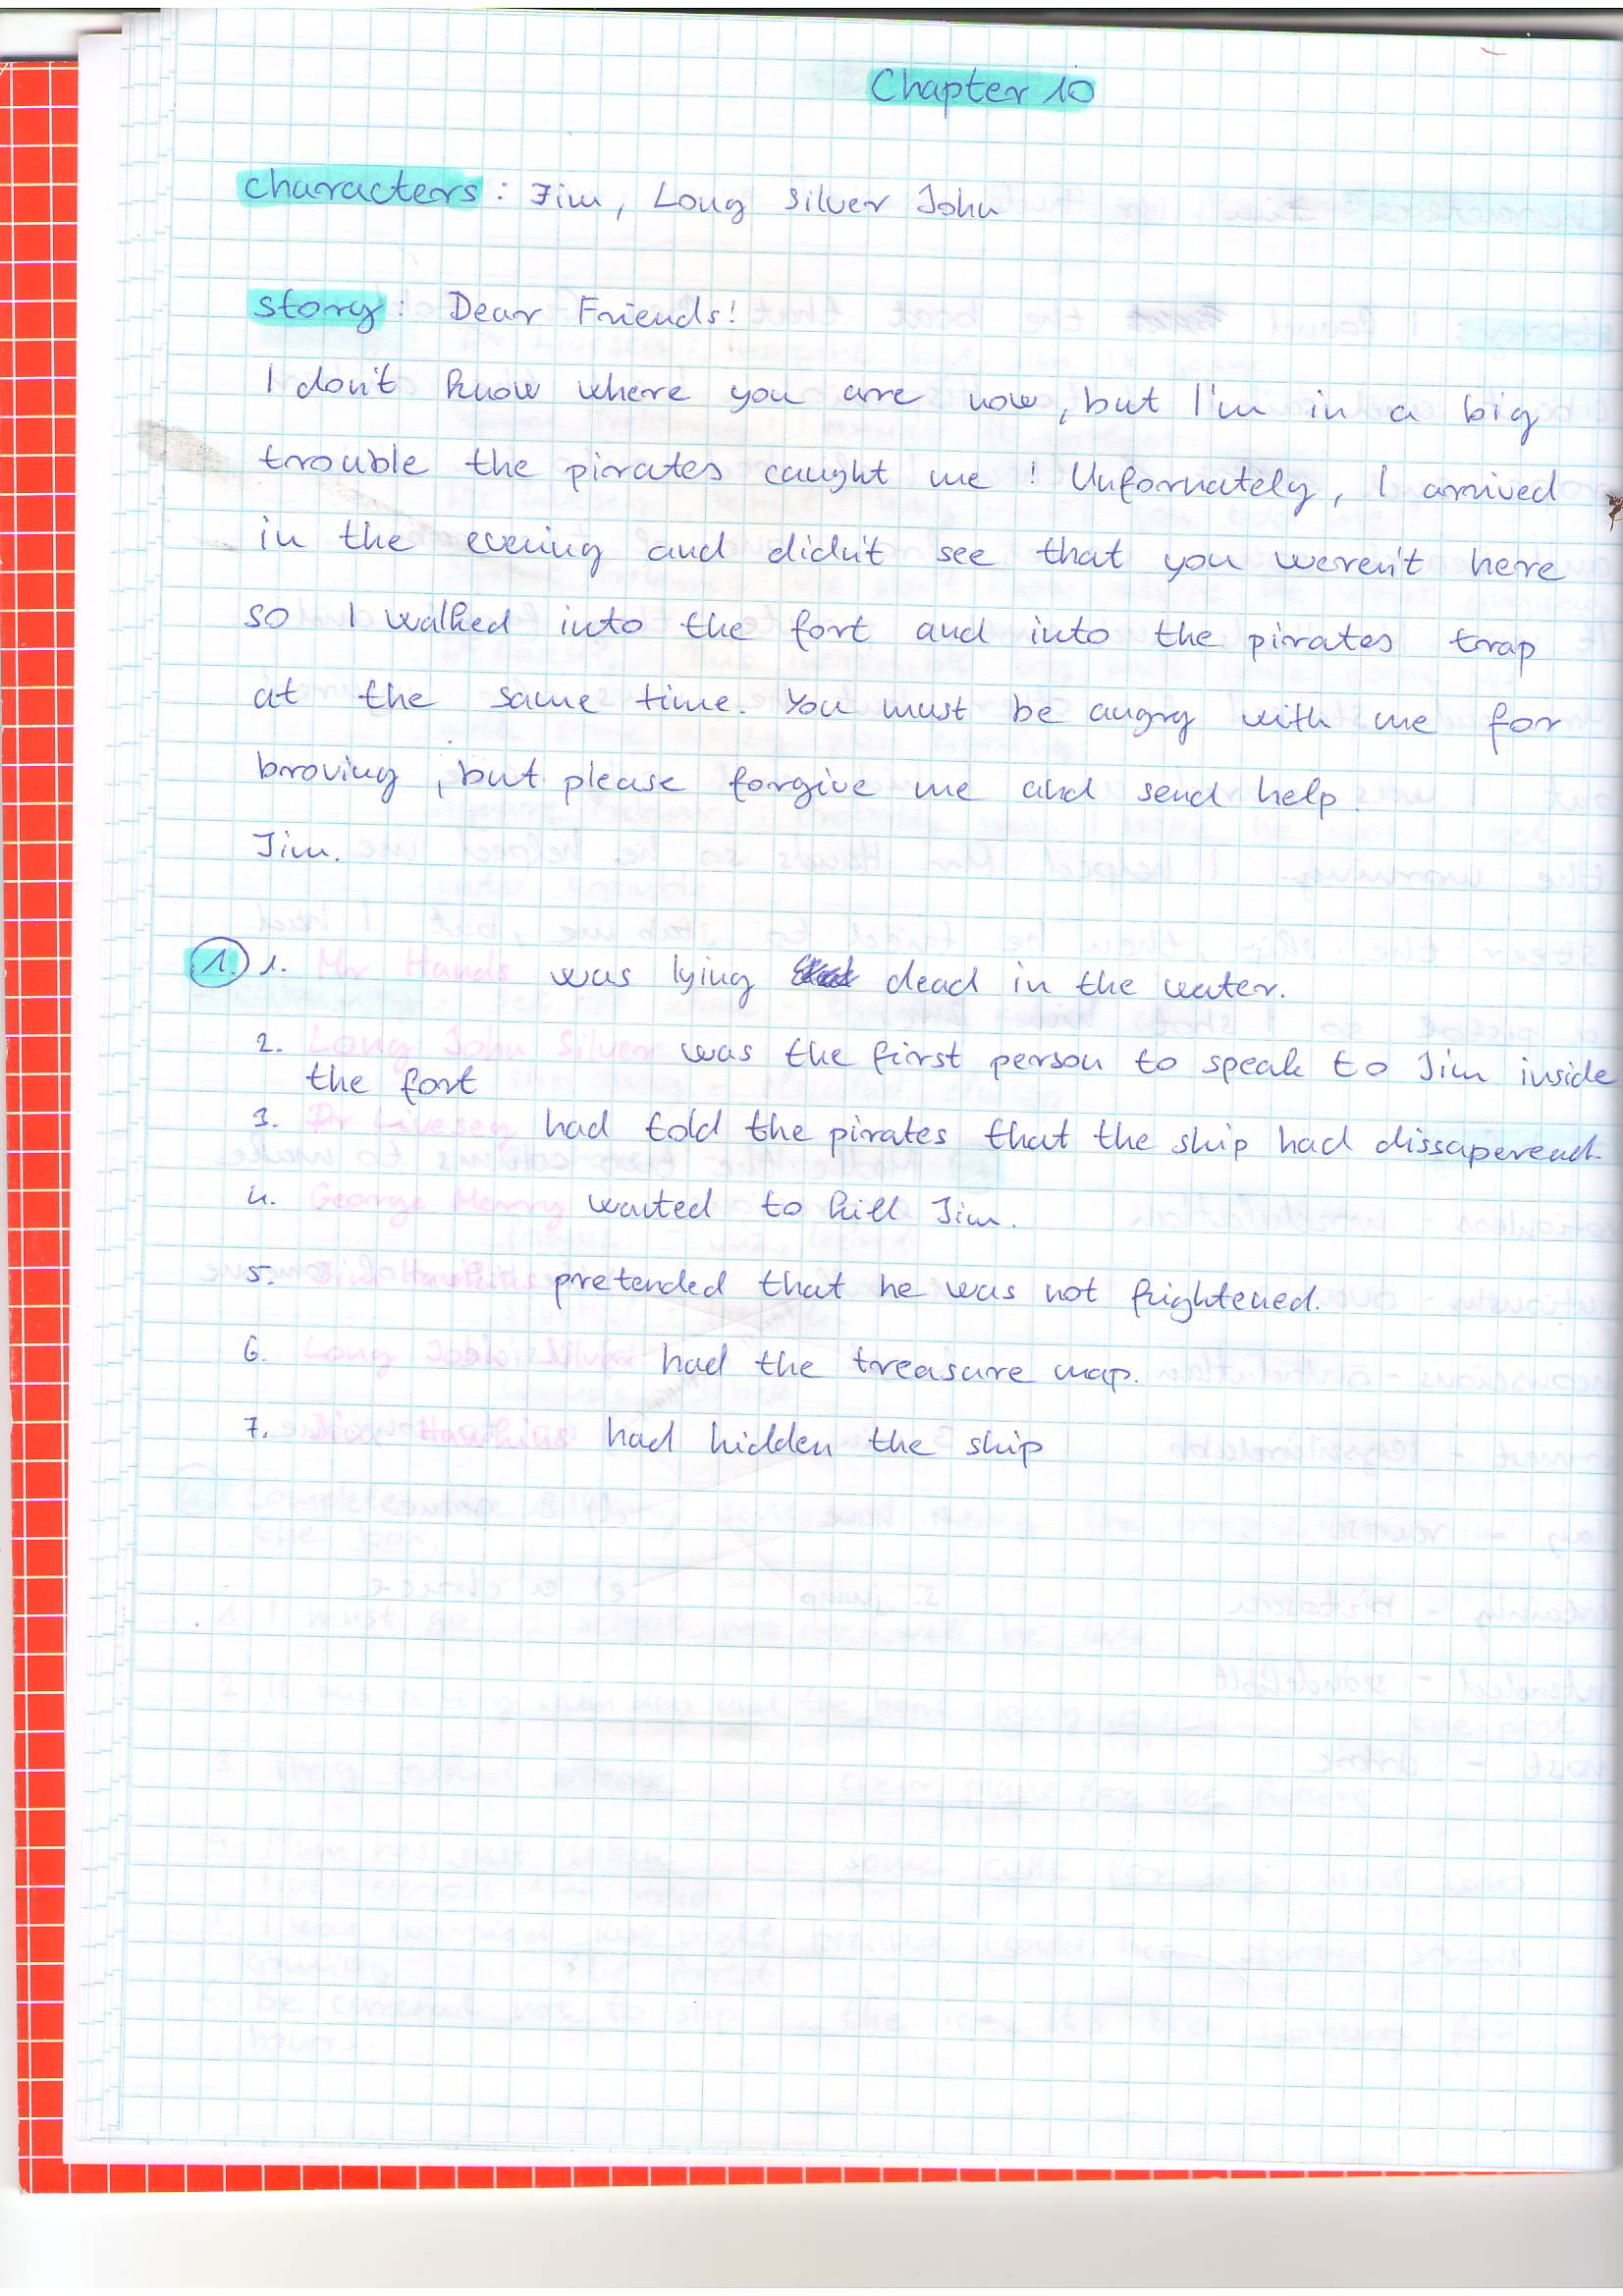 Chapter 10
characters: Jim, Long Silver John
story: Dear Friends!
I don't know where you are now, but I'm in a big
trouble the pirates caught me! Unfornately, I arrived
in the evening and didn't see that you weren't here
so I walked into the fort and into the pirates trap
at the same time. You must be angry with me for
broving, but please forgive me and send help.
Jim.
1. 1. Mr Hands was lying dead in the water.
2. Long John Silver was the first person to speak to Jim inside
the fort
3. Dr Livesey had told the pirates that the ship had dissaperead.
4. George Merry wanted to kill Jim.
5. Jim Hawkins pretended that he was not frightened.
6. Long John Silver had the treasure map.
7. Jim Hawkins had hidden the ship